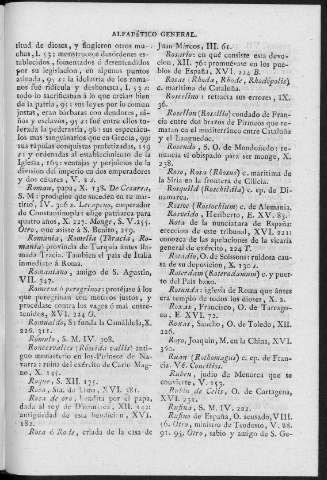 ALFABÉTICO GENERAL.
titud de dioses, y fingieron otros mu-
chos, I. 53: menstruosos desórdenes es-
tablecidos, fomentados ó desentendidos
por su legislacion, en algunos puntos
atinada, 95 2: la idolatría de los roma-
nos fué ridícula y deshonesta, I. 53 2:
todo lo sacrificaban á lo que creían bien
de la patria, 95: sus leyes por lo comun
justas, eran bárbaras con deudores, ni-
ños y esclavos, 95 2: fué entre ellos to-
lerada la pederastia, 96: sus espectácu-
los mas sanguinarios que en Grecia, 99:
sus rápidas conquistas profetizadas, 159
2: y ordenadas al establecimiento de la
Iglesia, 165: ventajas y perjuicios de la
division del imperio en dos emperadores
y dos césares, V. 2 2.
Roman, papa, X. 138. De Cesarea,
S. M.: prodigios que suceden en su mar-
tirio, IV. 306 2. Lecapeno, emperador
de Constantinopla: elige patriarca para
quatro años, X. 227. Monge, S. VI. 255.
Otro, que asiste á S. Benito, 259.
Romania, Romelia (Thracia, Ro-
mania) provincia de Turquía ántes lla-
mada Tracia. Tambien el pais de Italia
inmediato á Roma.
Romaniano, amigo de S. Agustin,
VII. 347.
Romeros ó peregrinos: protéjase á los
que peregrinan con motivos justos, y
procédase contra los vagos ó mal entre-
tenidos, XVI. 224 G.
Romualdo, S: funda la Camáldula, X.
226. 311.
Rómulo, S. M. IV. 308.
Roncesvalles (Róscida vallis) anti-
guo monasterio en los Pirineos de Na-
varra: ruina del exército de Carlo Mag-
no, X. 145.
Roque, S. XII. 175.
Rosa, Sta. de Lima, XVI. 381.
Rosa de oro, bendita por el papa,
dada al rey de Dinamarca, XII. 102:
antigüedad de esta bendicion, XVI.
182.
Rosa ó Rode, criada de la casa de
Juan Márcos, III. 61.
Rosario: en qué consiste esta devo-
cion, XII. 76: promuévase en los pue-
blos de España, XVI. 224 B.
Rosas (Rhoda, Rhode, Rhodópolis)
c. marítima de Cataluña.
Roscelino: retracta sus errores, IX.
36.
Rosellon (Rosilló) condado de Fran-
cia entre dos brazos de Pirineos que re-
matan en el mediterráneo entre Cataluña
y el Languedoc.
Rosendo, S. O. de Mondoñedo: re-
nuncia el obispado para ser monge, X.
238.
Roso, Rosa (Rhosus) c. marítima de
la Siria en la frontera de Cilicia.
Rosquild (Roschildia) c. ep. de Di-
namarca.
Rostoc (Rostochium) c. de Alemania.
Rosweido, Heriberto, E. XV. 83.
Rota de la nunciatura de España:
ereccion de este tribunal, XVI. 221:
conozca de las apelaciones de la vicaría
general de exército, 224 T.
Rotadio, O. de Soissons: ruidosa cau-
sa de su deposicion, X. 130 2.
Roterdam (Roterodamum) c. y puer-
to del Pais baxo.
Rotunda: iglesia de Roma que ántes
era templo de todos los dioses, X. 2.
Roxas, Francisco, O. de Tarrago-
na, E. XVI. 72.
Roxas, Sancho, O. de Toledo, XII.
226.
Royo, Joaquin, M. en la China, XVI.
360.
Ruan (Rothomagus) c. ep. de Fran-
cia. Vé. Concilios.
Ruben, judío de Menorca que se
convierte, V. 253.
Rubin de Celis, O. de Cartagena,
XVI. 232.
Rufina, S. M. IV. 202.
Rufino de España, O. acusado, VIII.
16. Otro, ministro de Teodosio, V. 28.
91. 95. Otro, sabio y amigo de S. Ge-